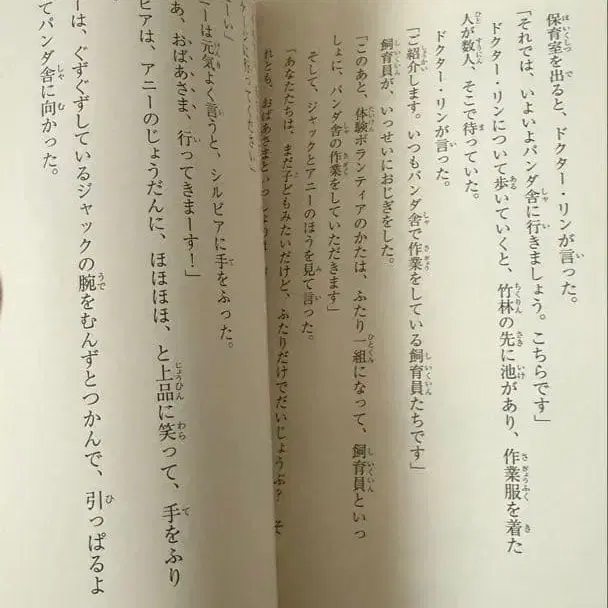 保育室を出ると、ドクター・リンが言った。
「それでは、いよいよパンダ舎に行きましょう。こちらです」
ドクター・リンについて歩いていくと、竹林の先に池があり、作業服を着た
人が数人、そこで待っていた。
ドクター・リンが言った。
「ご紹介します。いつもパンダ舎で作業をしている飼育員たちです」
飼育員が、いっせいにおじぎをした。
「このあと、体験ボランティアのかたは、ふたり一組になって、飼育員といっ
しょに、パンダ舎の作業をしていただきます」
そして、ジャックとアニーのほうを見て言った。
「あなたたちは、まだ子どもみたいだけど、ふたりだけでだいじょうぶ？　そ
れとも、おばあさまといっしょ
ください」
ーい」
ーは元気よく言うと、シルビアに手をふった。
あ、おばあさま、行ってきまーす！」
ビアは、アニーのじょうだんに、ほほほほ、と上品に笑って、手をふり
ーは、ぐずぐずしているジャックの腕をむんずとつかんで、引っぱるよ
てパンダ舎に向かった。